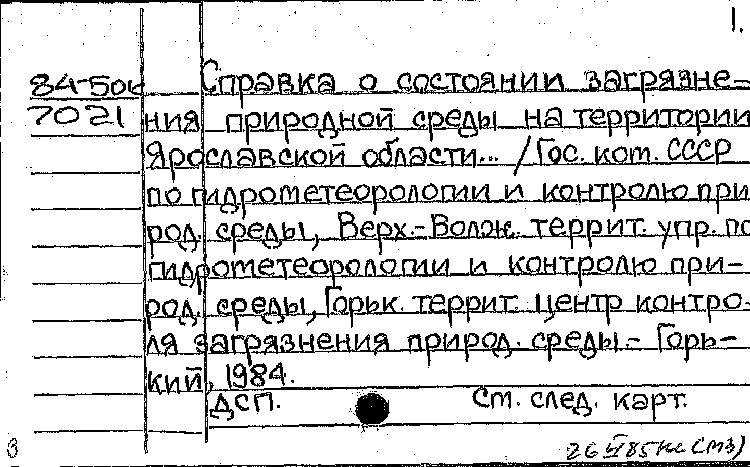 1.
84-50к
7021
Справка о состоянии загрязне-
ния природной среды на территории
Ярославской области... /Гос. ком. СССР
по гидрометеорологии и контролю при
род. среды, Верх.-Волж. террит. упр. по
гидрометеорологии и контролю при-
род. среды, Горьк. террит. центр контро-
ля загрязнения природ. среды.- Горь-
кий, 1984.
ДСП. См. след. карт.
26 VI 85